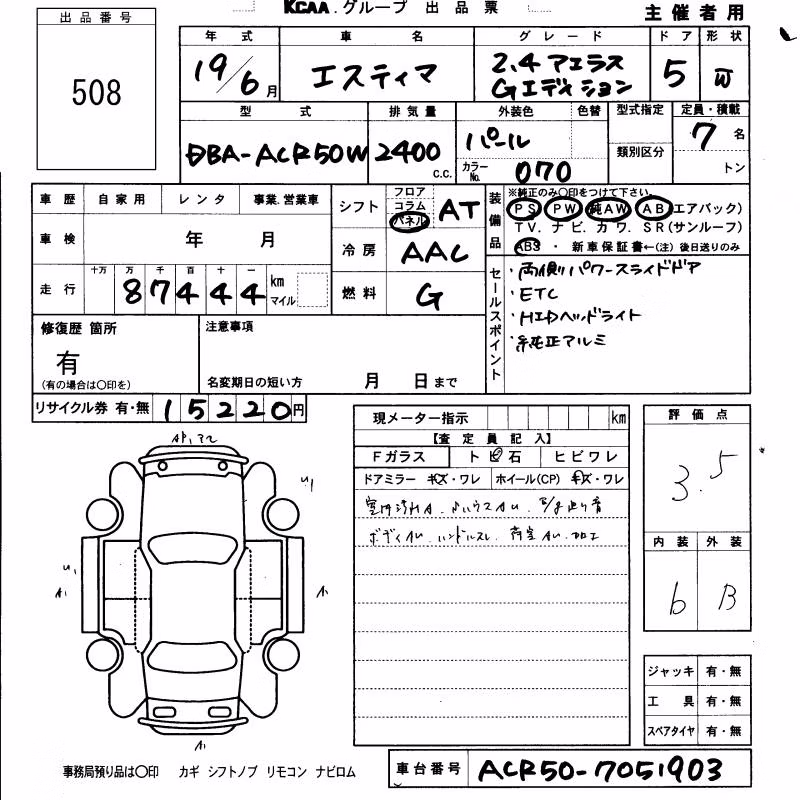 KCAA.グループ 出品票
主催者用
出品番号
508
年式 車名 グレード ドア 形状
19/6月 エスティマ 2.4アエラス Gエディション 5 W
型式 排気量 外装色 色替 型式指定 定員・積載
DBA-ACR50W 2400 C.C. パール 7名
カラーNo. 070 類別区分 トン
車歴 自家用 レンタ 事業.営業車
シフト フロア コラム パネル AT
装備品 ※純正のみ〇印をつけて下さい。
PS PW 純AW AB(エアバック)
TV. ナビ. カワ. SR(サンルーフ)
ABS ・ 新車保証書←(注) 後日送りのみ
車検 年 月
冷房 AAC
走行 十万 万 千 百 十 一
87444 km マイル
燃料 G
セールスポイント
・両側パワースライドドア
・ETC
・HIDヘッドライト
・純正アルミ
修復歴 箇所
有
(有の場合は〇印を)
注意事項
名変期日の短い方 月 日まで
リサイクル券 有・無 15220円
現メーター指示 km
【査定員記入】
Fガラス トビ石 ヒビワレ
ドアミラー キズ・ワレ ホイール(CP) キズ・ワレ
ボディ ハンドルスレ 荷室 加工
評価点
3.5
内装 外装
b B
ジャッキ 有・無
工具 有・無
スペアタイヤ 有・無
A1
A1
A1
事務局預り品は〇印 カギ シフトノブ リモコン ナビロム
車台番号 ACR50-7051903